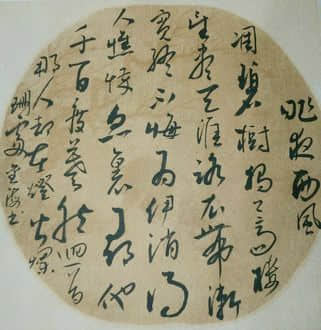 昨夜西風
凋碧樹獨上高樓
望盡天涯路衣帶漸
寬終不悔為伊消得
人憔悴眾裏尋他
千百度驀然迴首
那人却在燈火闌
珊處 海書